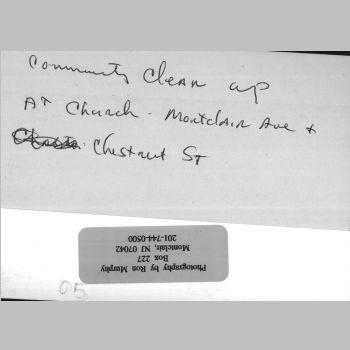 Community Clean up
At Church - Montclair Ave +
Chestnut St
Photography by Ron Murphy
Box 227
Montclair, NJ 07042
201-744-0500
05